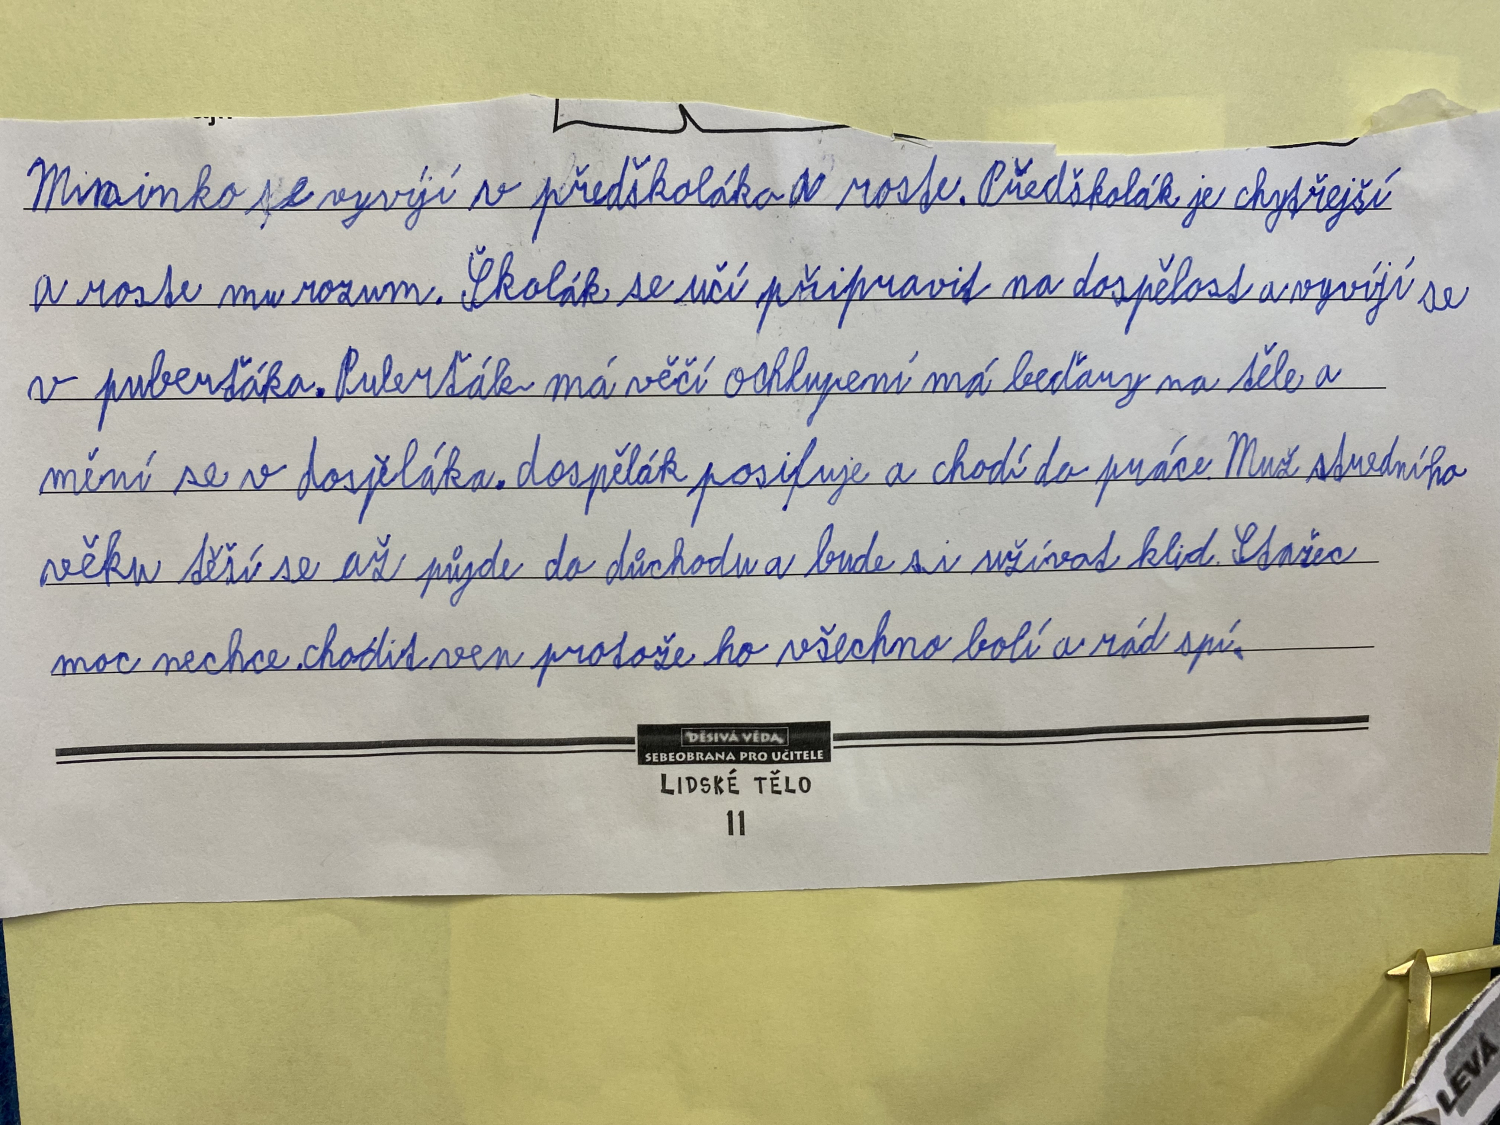 Miminko se vyvýjí v předškoláka a roste. Předškolák je chytřejší
a roste mu rozum. Školák se učí připravit na dospělost a vyvíjí se
v puberťáka. Puberťák má věčí ochlupení má beďary na těle a
mění se v dospěláka. dospělák posiluje a chodí do práce. Muž středního
věku těší se až půjde do důchodu a bude si užívat klid. Stařec
moc nechce chodit ven protože ho všechno bolí a rád spí.
DĚSIVÁ VĚDA
SEBEOBRANA PRO UČITELE
LIDSKÉ TĚLO
11
LEVÁ